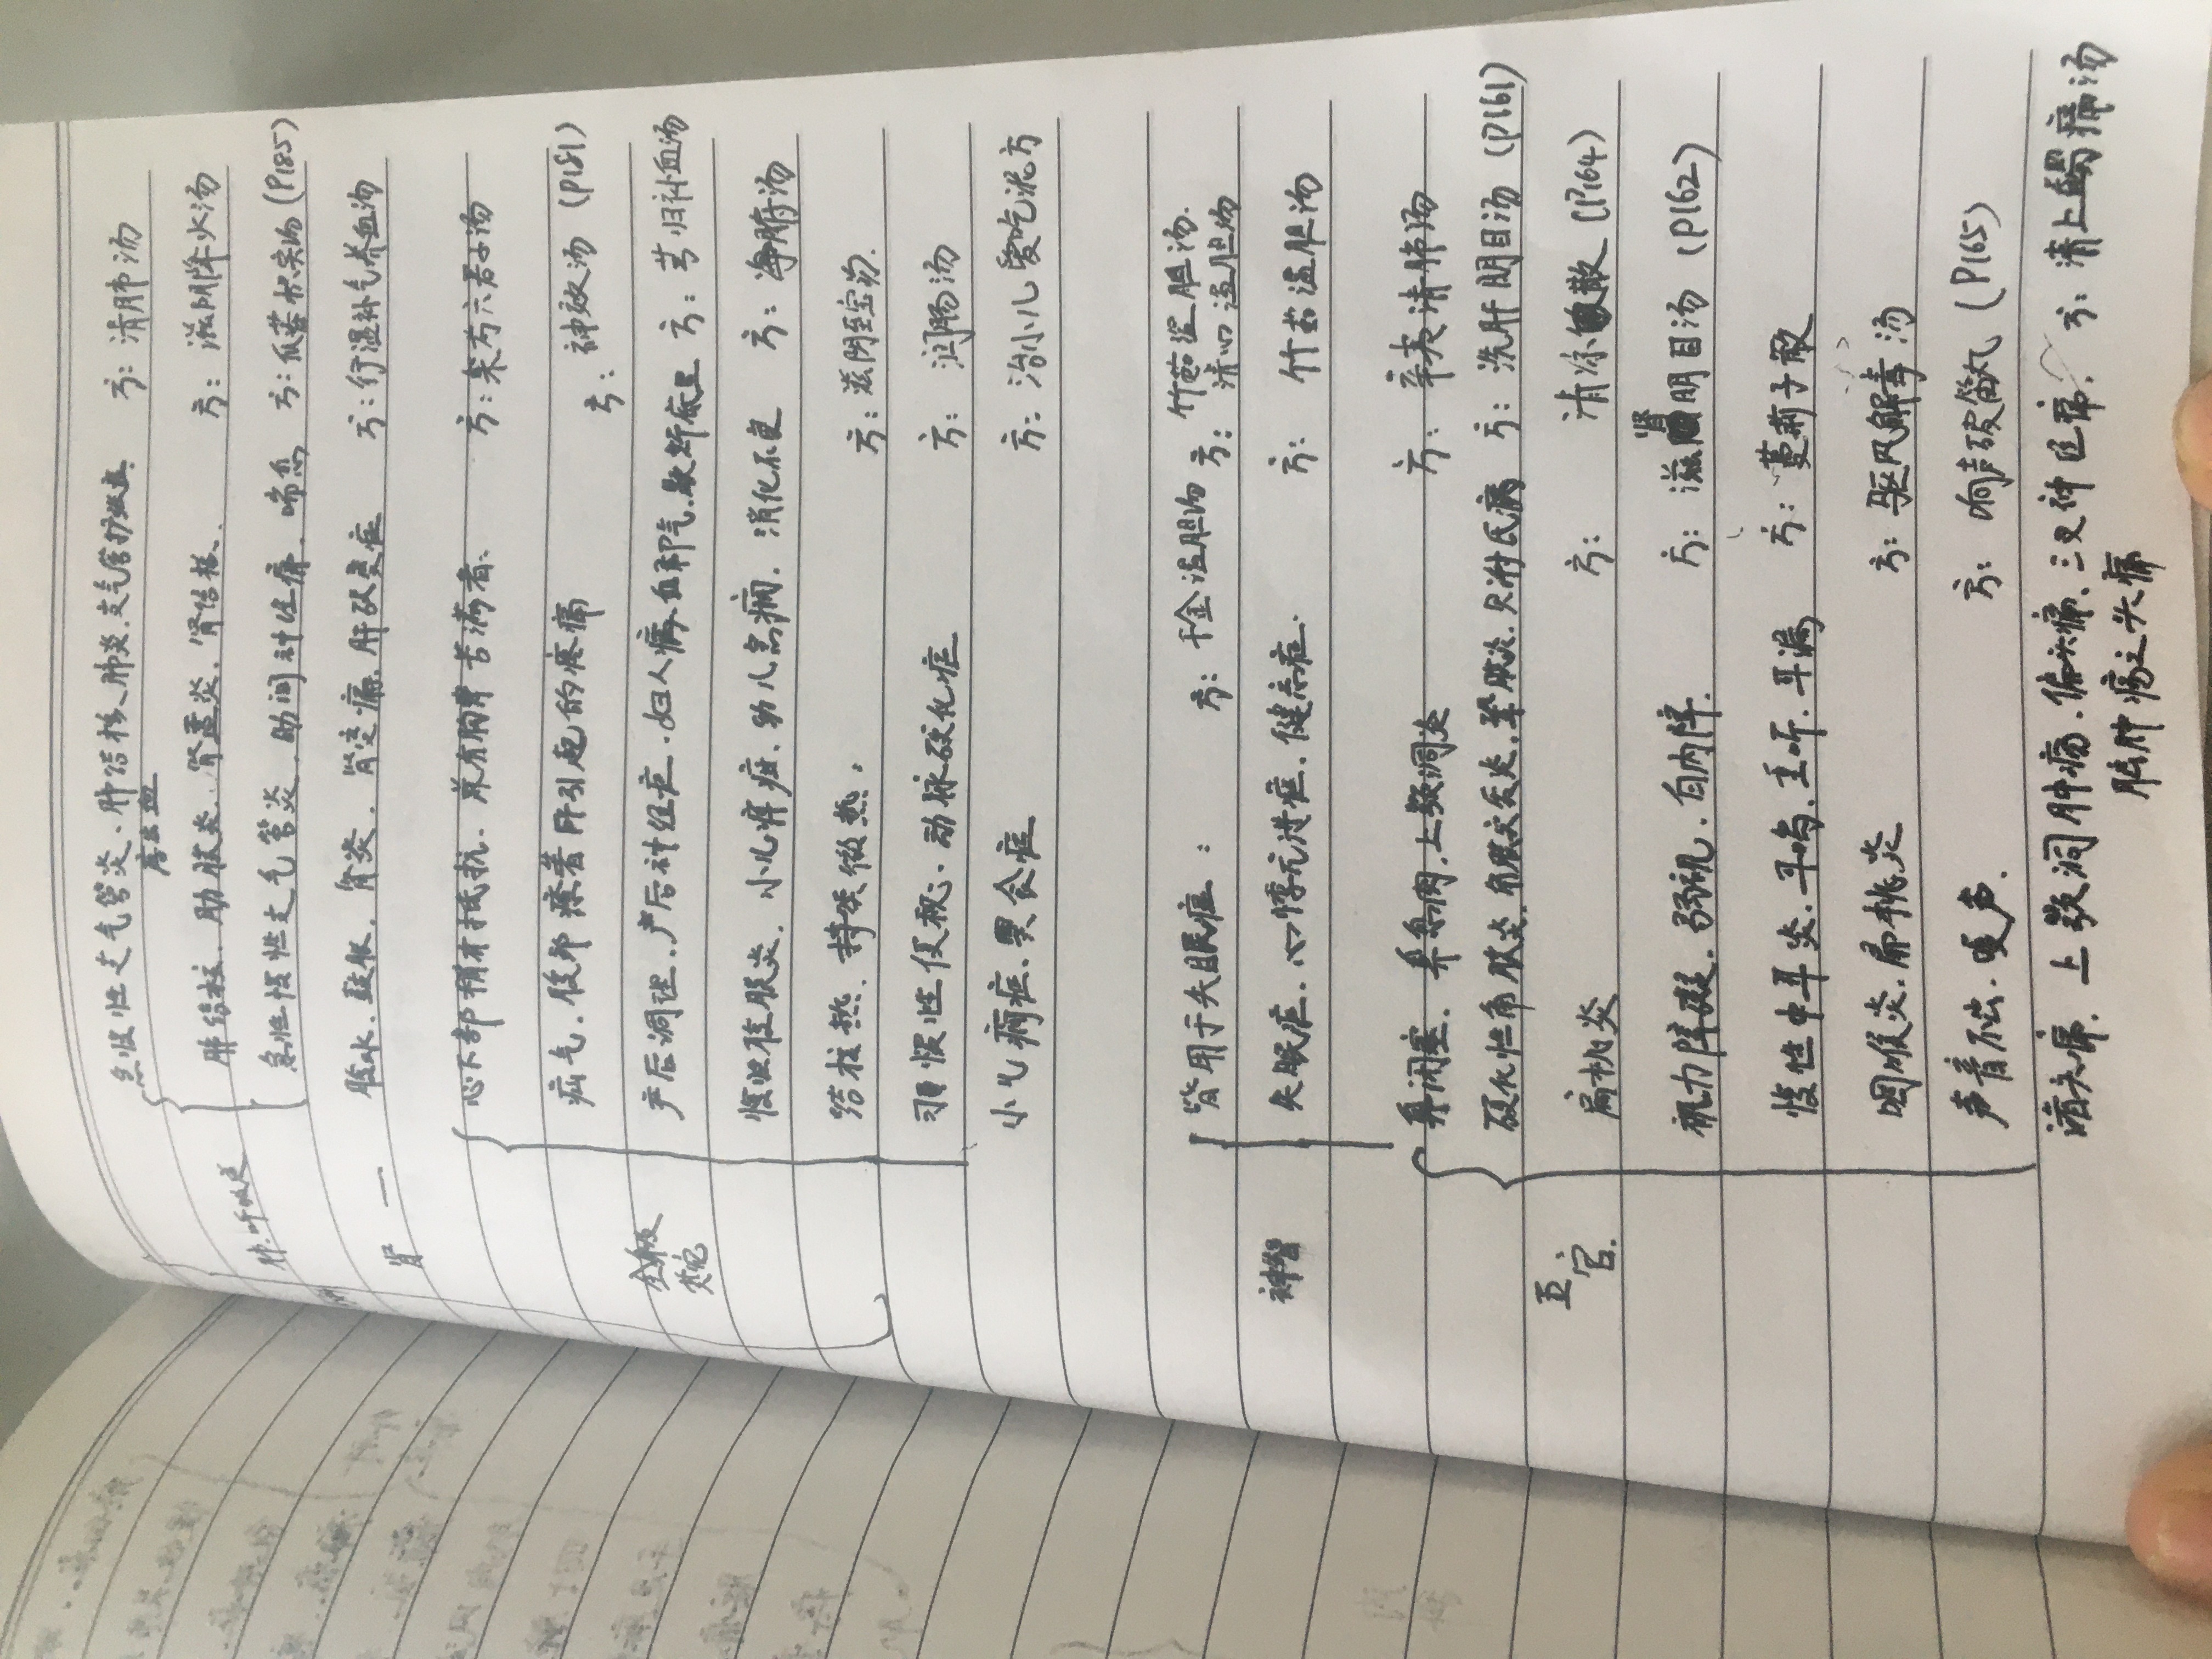 急慢性支气管炎、肺结核、肺炎、支气管扩张 方：清肺汤
肺、呼吸
肺结核、肋膜炎、肾盂炎、肾结核、 方：滋阴降火汤
急性慢性支气管炎、肋间神经痛、喘息 方：瓜蒌枳实汤（P185）
肾 一 脹水、鼓胀、肾炎、肾变病、肝硬变症 方：行湿补气养血汤
心下部稍有抵抗、兼有胸胃苦满者、 方：柴芍六君子汤
疝气、腹部 瘀着 所引起的疼痛 方：神效汤（P181）
产后调理、产后神经症、妇人病、血郁气、 方：芎归补血汤
慢性腹膜炎、小儿脾疳、幼儿 癖、消化不良 方：净腑汤
结核热、持续微热， 方：滋阴至宝汤.
习惯性便秘、动脉硬化症 方：润肠汤
小儿疳症、异食症 方：治小儿爱吃泥方
皆用于失眠症： 方：千金温胆汤 方：竹茹温胆汤.
清心温胆汤
神智
失眠症、心悸亢进症、健忘症. 方：竹茹温胆汤
鼻闭塞、鼻息肉、上颚洞炎 方：辛夷清肺汤
五官.
硬化性角膜炎、角膜实炎、巩膜炎、只附氏病 方：洗肝明目汤（P161）
扁桃炎 方：清凉散（P164）
视力障碍、弱视、白内障. 方：滋肾明目汤（P162）
慢性中耳炎、耳鸣、重听、耳漏 方：蔓荆子散
咽喉炎、扁桃炎 方：驱风解毒汤
声音不出、嗄声. 方：响声破笛丸（P165）
诸头痛、上颚洞肿疡、偏头痛、三叉神经痛、 方：清上蠲痛汤
脑肿疡之头痛